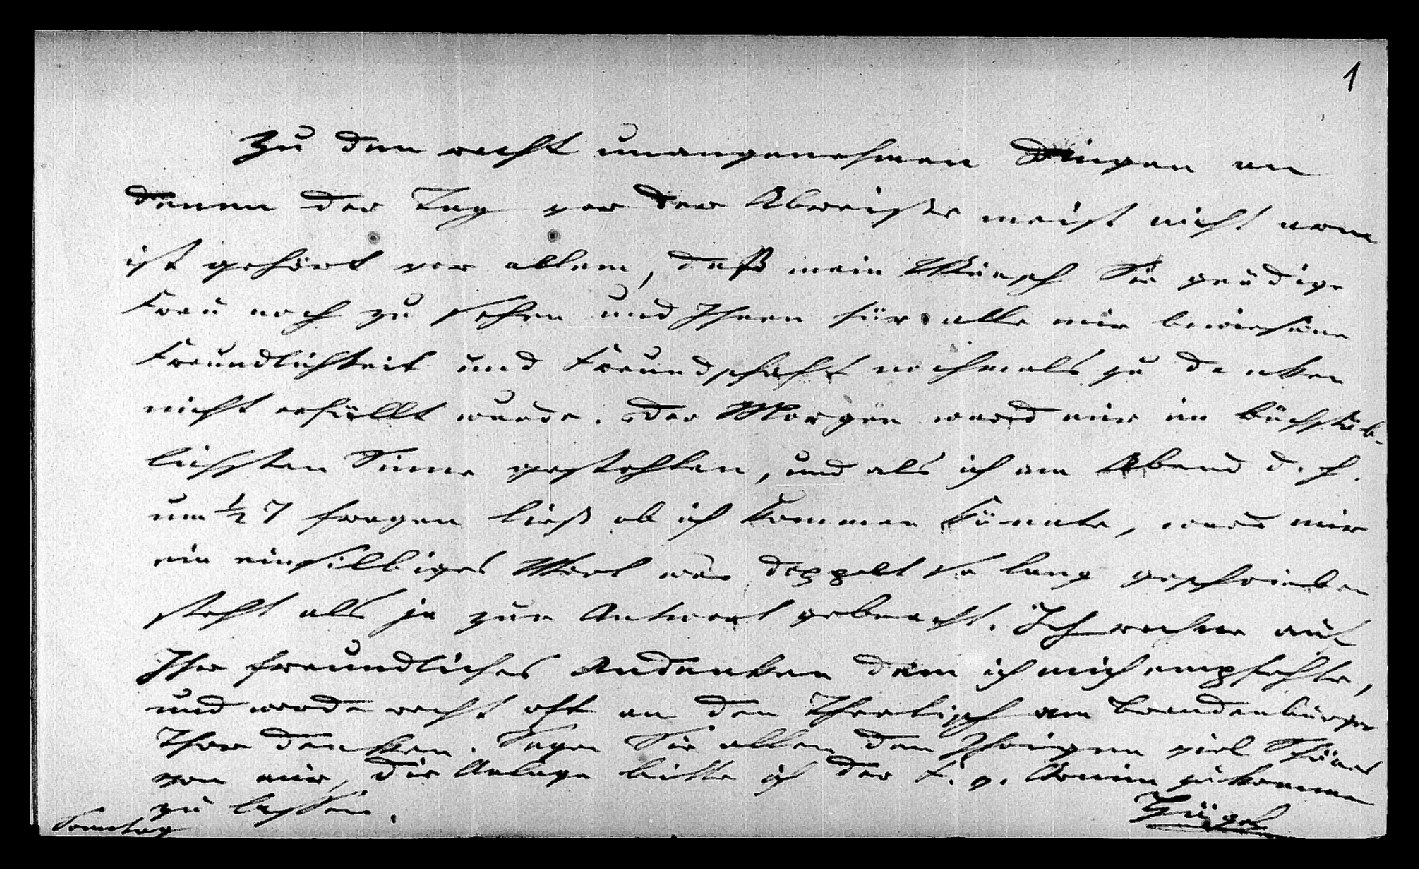 1
Zu den recht unangenehmen Dingen an
denen der Tag vor der Abreise meist nicht arm
ist gehört vor allem, daß mein Wunsch Sie gnädige
Frau noch zu sehen und Ihnen für alle mir bewiesene
Freundlichkeit und Freundschaft nochmals zu danken
nicht erfüllt wurde. Der Morgen ward mir im buchstäb-
lichsten Sinne gestohlen, und als ich am Abend d. h.
um ½ 7 fragen ließ ob ich kommen könnte, ward mir
ein einsilbiges Wort was doppelt so lang geschrieben
steht als ja zur Antwort gebracht. Ich rechne auf
Ihr freundliches Andenken dem ich mich empfehle,
und werde recht oft an den Theetisch am Brandenburger
Thor denken. Sagen Sie allen den Ihrigen viel Schönes
von mir, die Anlage bitte ich der F. v. Arnim zukommen
zu lassen.
Hügel
Sonntag